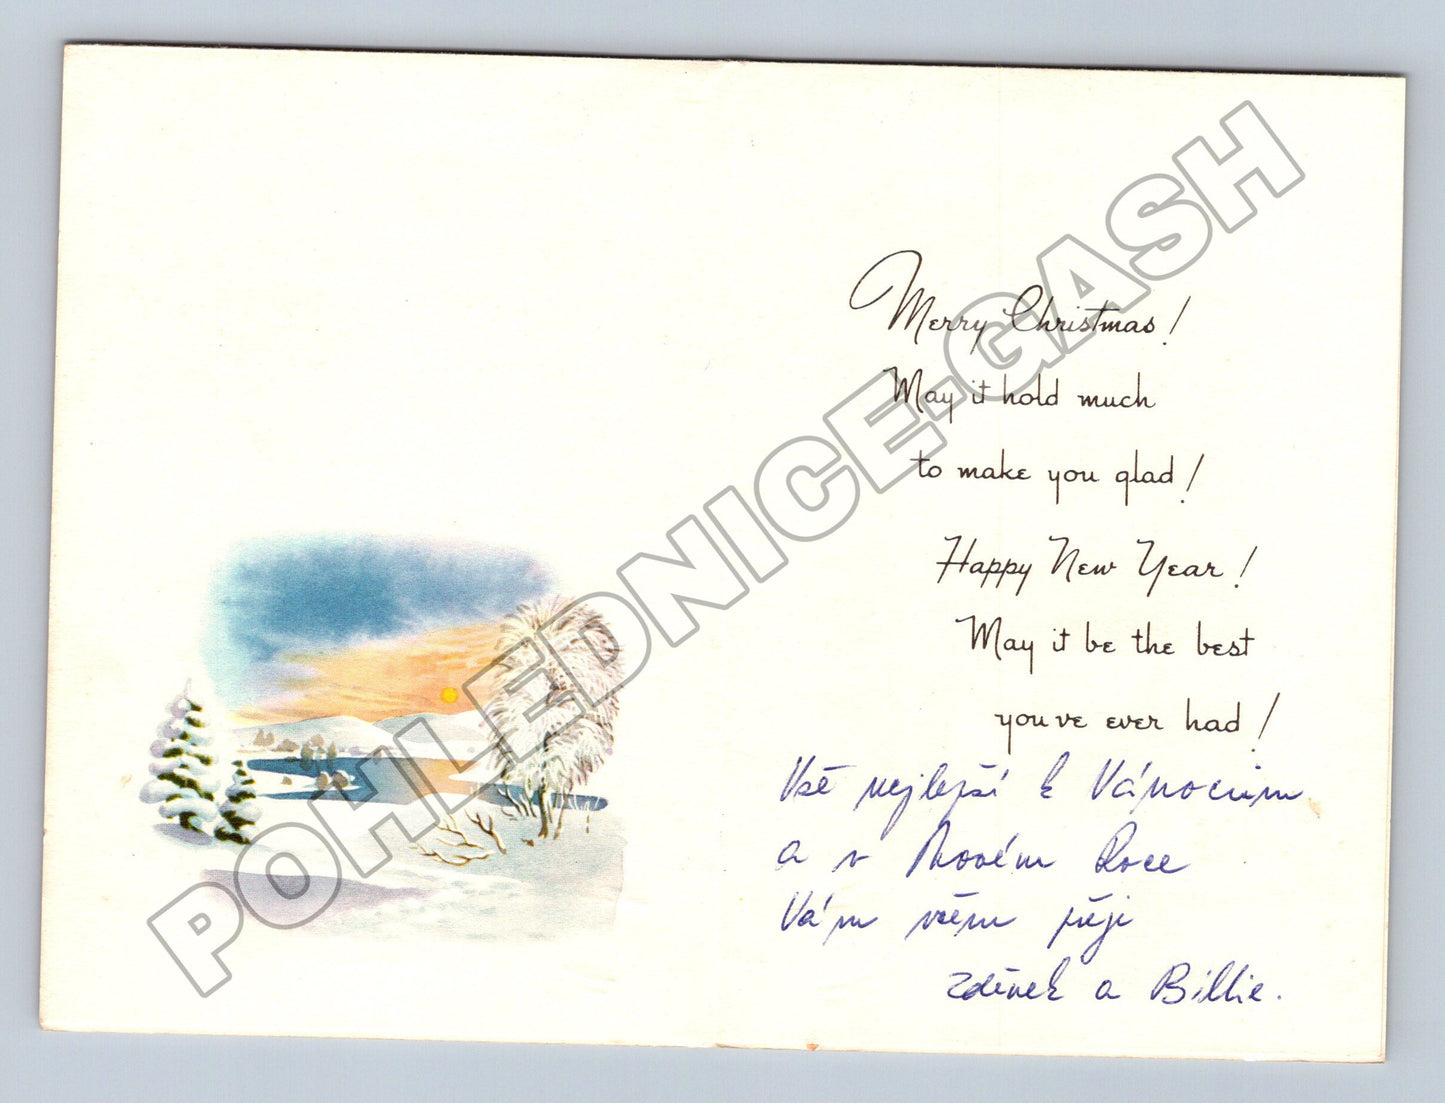 Merry Christmas!
May it hold much
to make you glad!
Happy New Year!
May it be the best
you've ever had!
Vše nejlepší k Vánocům
a v Novém Roce
Vám všem přeji
Zdeněk a Billie.
POHLEDNICE-GASH